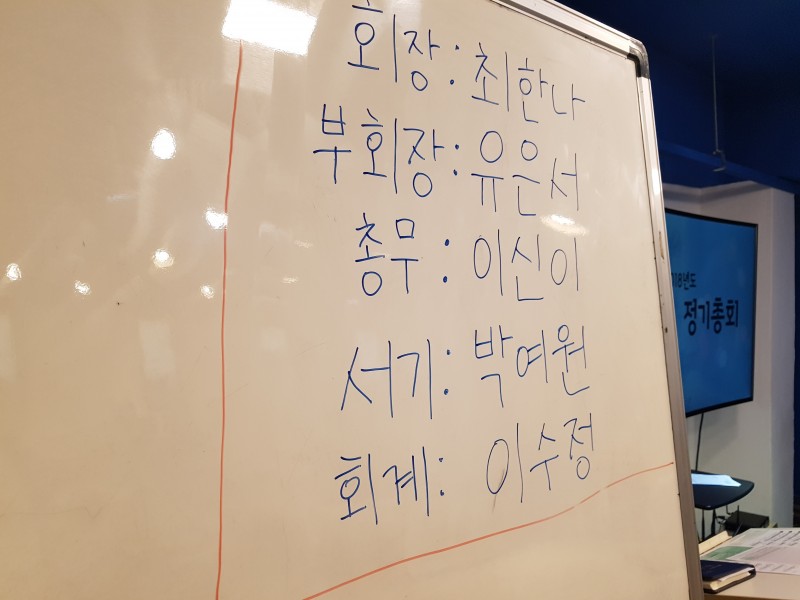 회장: 최한나
부회장: 유은서
총무: 이신이
서기: 박여원
회계: 이수정
18년도
정기총회